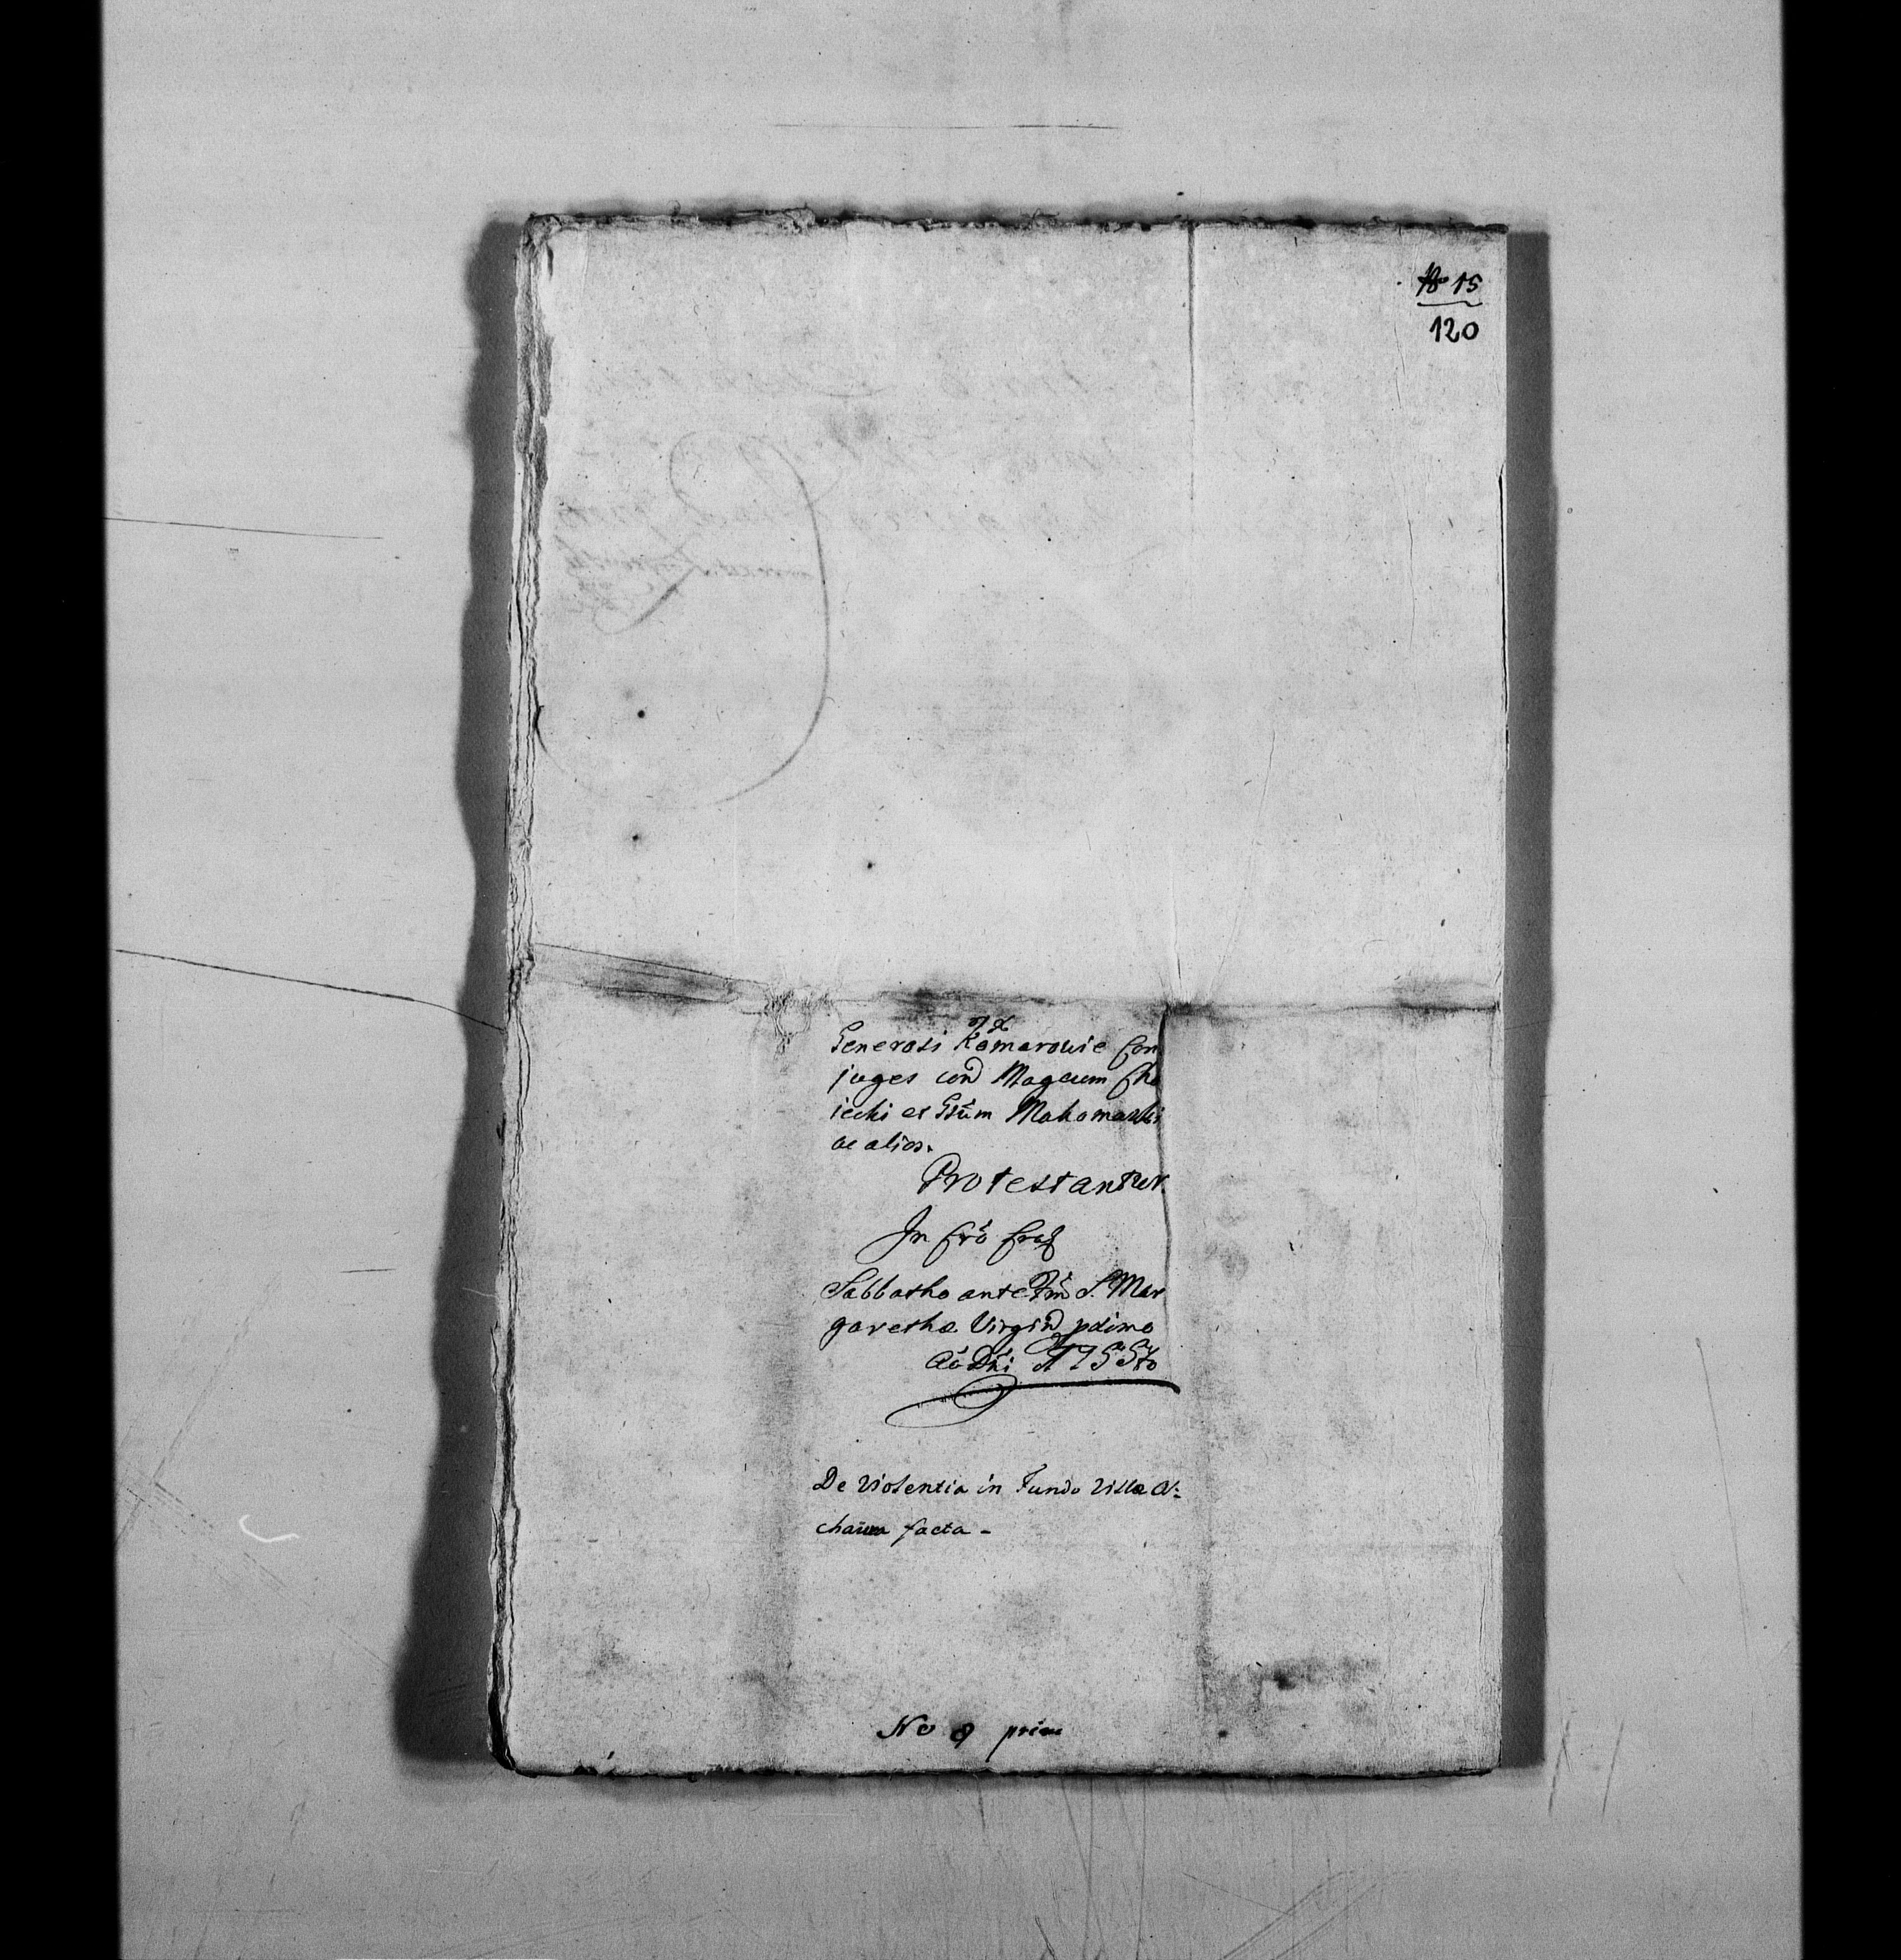 15
120
Generosi Komarowie Con
juges con Magcum Cho
iecki et Gsum Mahomaski
ac alios.
Protestantur.
In Cro Crac
Sabbatho ante Fm S. Mar
garetha Virgin pximo
Ao Dni
De Violentia in Fundo Villa
facta -
No 8 prim